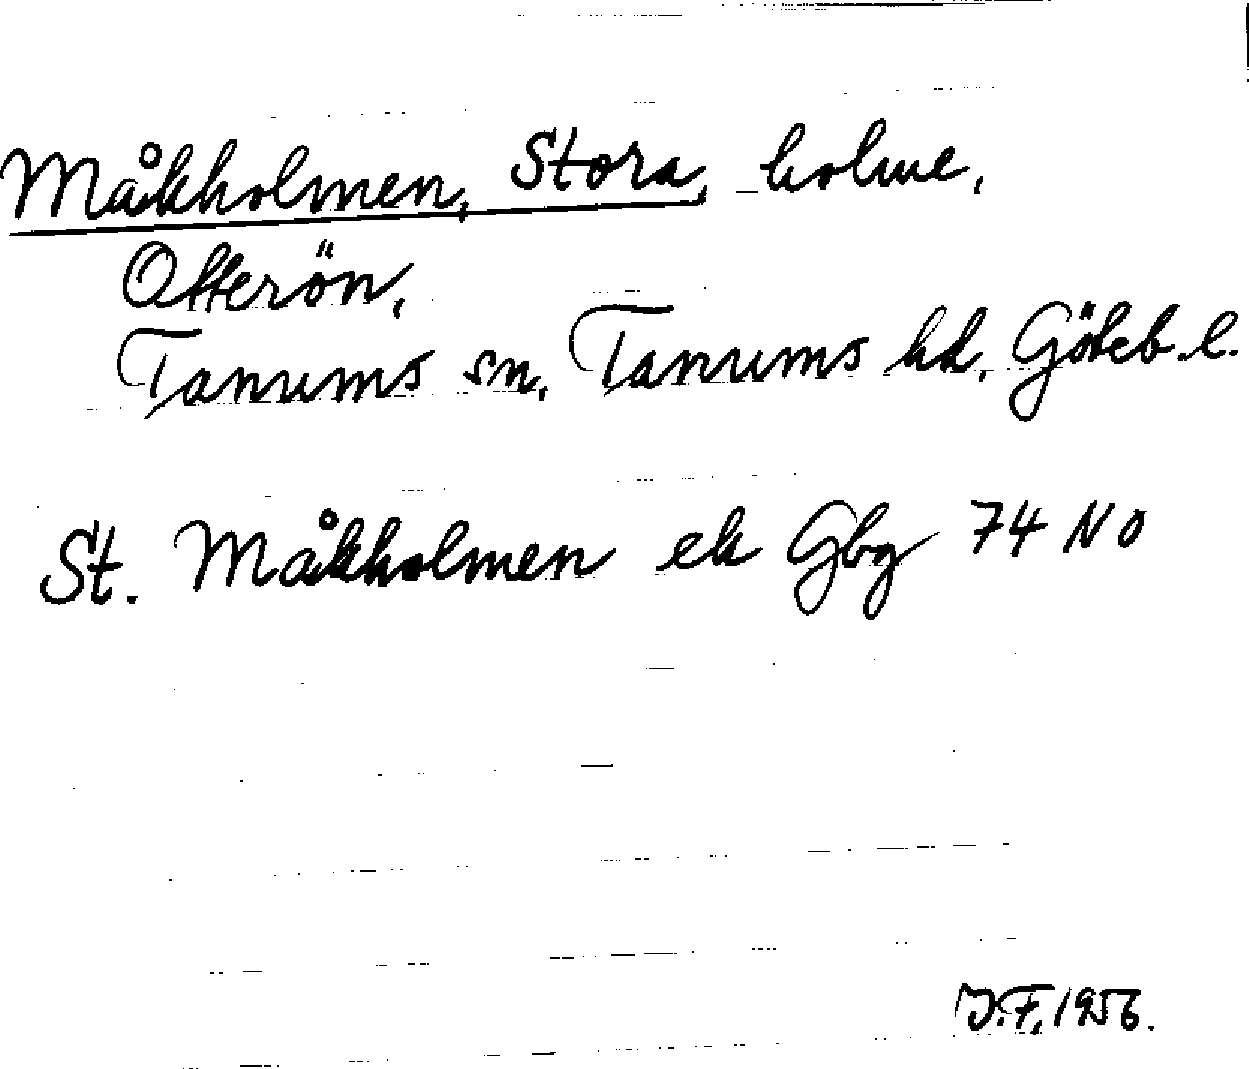 Måkholmen, Stora, holme,
Otterön,
Tanums sn. Tanums hd. Göteb. l.
St. Måkholmen ek Gbg 74 NO
J.F. 1956.